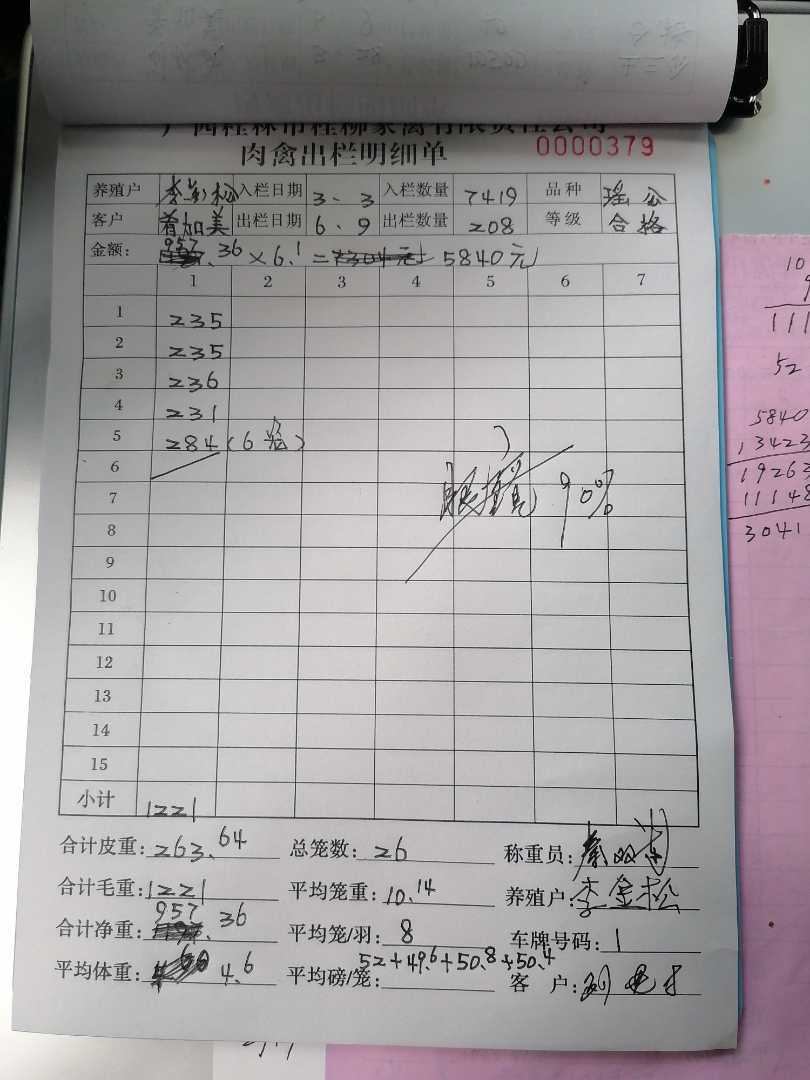 广西桂林市桂柳家禽有限责任公司
肉禽出栏明细单 0000379
养殖户 李金松 入栏日期 3.3 入栏数量 7419 品种 瑶公
客户 肖加美 出栏日期 6.9 出栏数量 208 等级 合格
金额: 957.36 × 6.1 = 5840元
1 2 3 4 5 6 7
1 235
2 235
3 236
4 231
5 284 (6笼)
6
7 90%
8
9
10
11
12
13
14
15
小计 1221
合计皮重: 263.64 总笼数: 26 称重员:
合计毛重: 1221 平均笼重: 10.14 养殖户: 李金松
合计净重: 957.36 平均笼/羽: 8 车牌号码: 1
平均体重: 4.6 平均磅/笼: 52+49.6+50.8+50.4 客户:
10
9
111
52
5840
13423
19263
11148
3041